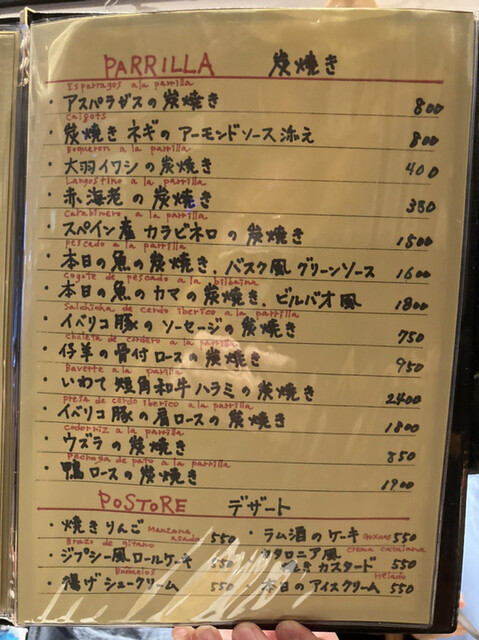 PARRILLA 炭焼き
Esparragos a la parrilla
・アスパラガスの炭焼き 800
Calgots
・炭焼き ネギの アーモンドソース添え 800
Boqueron a la parrilla
・大羽イワシの炭焼き 400
Langostino a la parrilla
・赤海老の炭焼き 350
Carabinero a la parrilla
・スペイン産 カラビネロの炭焼き 1500
Pescado a la parrilla
・本日の魚の炭焼き、バスク風グリーンソース 1600
Cogote de pescado a la bilbaina
・本日の魚のカマの炭焼き、ビルバオ風 1800
Salchicha de cerdo iberico a la parrilla
・イベリコ豚のソーセージの炭焼き 750
Chuleta de cordero a la parrilla
・仔羊の骨付ロースの炭焼き 950
Bavette a la parrilla
・いわて短角和牛ハラミの炭焼き 2400
Presa de cerdo iberico a la parrilla
・イベリコ豚の肩ロースの炭焼き 1800
Codorniz a la parrilla
・ウズラの炭焼き 850
Pechuga de pato a la parrilla
・鴨ロースの炭焼き 1900
POSTORE デザート
・焼きりんご Manzana asada 550
・ラム酒のケーキ 550
Brazo de gitano
・ジプシー風ロールケーキ 550
Crema catalana
・カタロニア風 カスタード 550
Buñuelos
・揚げシュークリーム 550
Helado
・本日のアイスクリーム 550